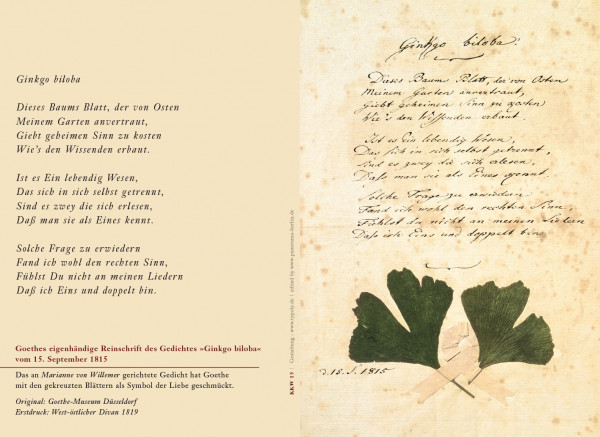 Ginkgo biloba
Dieses Baums Blatt, der von Osten
Meinem Garten anvertraut,
Giebt geheimen Sinn zu kosten
Wie's den Wissenden erbaut.
Ist es Ein lebendig Wesen,
Das sich in sich selbst getrennt,
Sind es zwey die sich erlesen,
Daß man sie als Eines kennt.
Solche Frage zu erwiedern
Fand ich wohl den rechten Sinn,
Fühlst Du nicht an meinen Liedern
Daß ich Eins und doppelt bin.
Goethes eigenhändige Reinschrift des Gedichtes »Ginkgo biloba«
vom 15. September 1815
Das an Marianne von Willemer gerichtete Gedicht hat Goethe
mit den gekreuzten Blättern als Symbol der Liebe geschmückt.
Original: Goethe-Museum Düsseldorf
Erstdruck: West-östlicher Divan 1819
KKW 13
Ginkgo biloba.
Dieses Baums Blatt, der von Osten
Meinem Garten anvertraut,
Giebt geheimen Sinn zu kosten
Wie's den Wissenden erbaut.
Ist es Ein lebendig Wesen,
Das sich in sich selbst getrennt,
Sind es zwey die sich erlesen,
Dass man sie als Eines kennt.
Solche Frage zu erwiedern
Fand ich wohl den rechten Sinn,
Fühlst du nicht an meinen Liedern
Dass ich Eins und doppelt bin.
d. 15. S. 1815